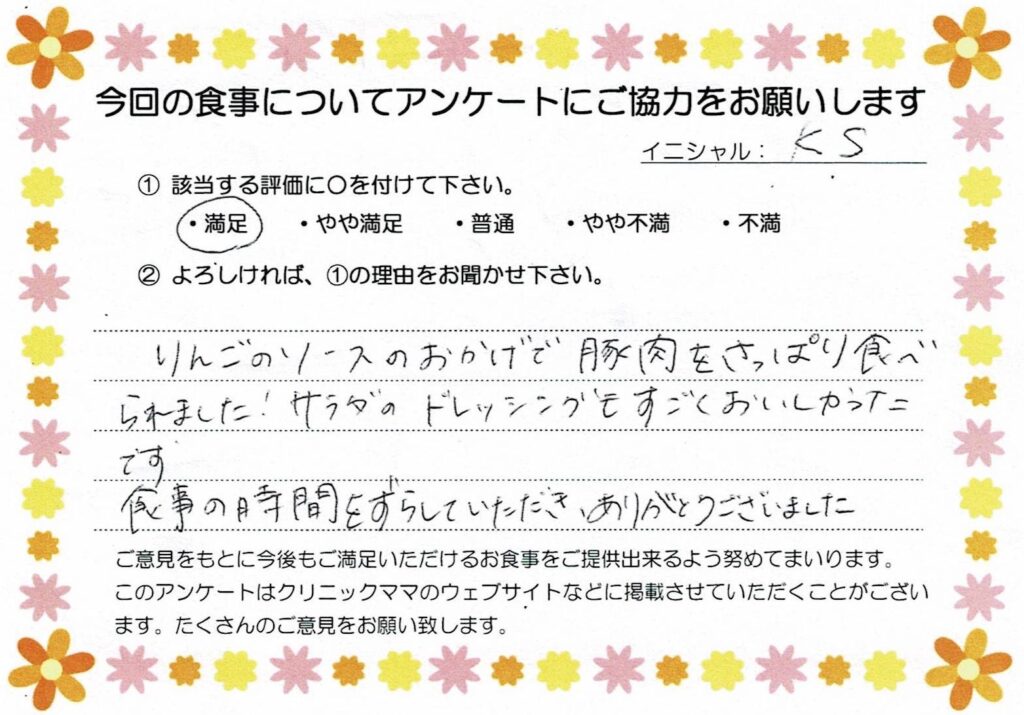 今回の食事についてアンケートにご協力をお願いします
イニシャル： KS
① 該当する評価に〇を付けて下さい。
・満足 ・やや満足 ・普通 ・やや不満 ・不満
② よろしければ、①の理由をお聞かせ下さい。
りんごのソースのおかげで豚肉をさっぱり食べ
られました！サラダのドレッシングもすごくおいしかった
です
食事の時間をずらしていただき、ありがとうございました
ご意見をもとに今後もご満足いただけるお食事をご提供出来るよう努めてまいります。
このアンケートはクリニックママのウェブサイトなどに掲載させていただくことがござい
ます。たくさんのご意見をお願い致します。